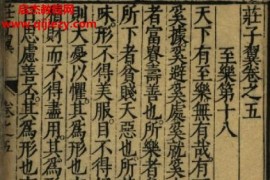 莊子翼卷之五
至樂第十八
天下有至樂無有哉有
奚據奚避奚處奚就
者富貴壽善也所樂者
所下者貧賤夭惡也所
味形不得美服目不得
則大憂以懼其為形也
財而不得盡用其為形
慮善否其為形也
卷之五